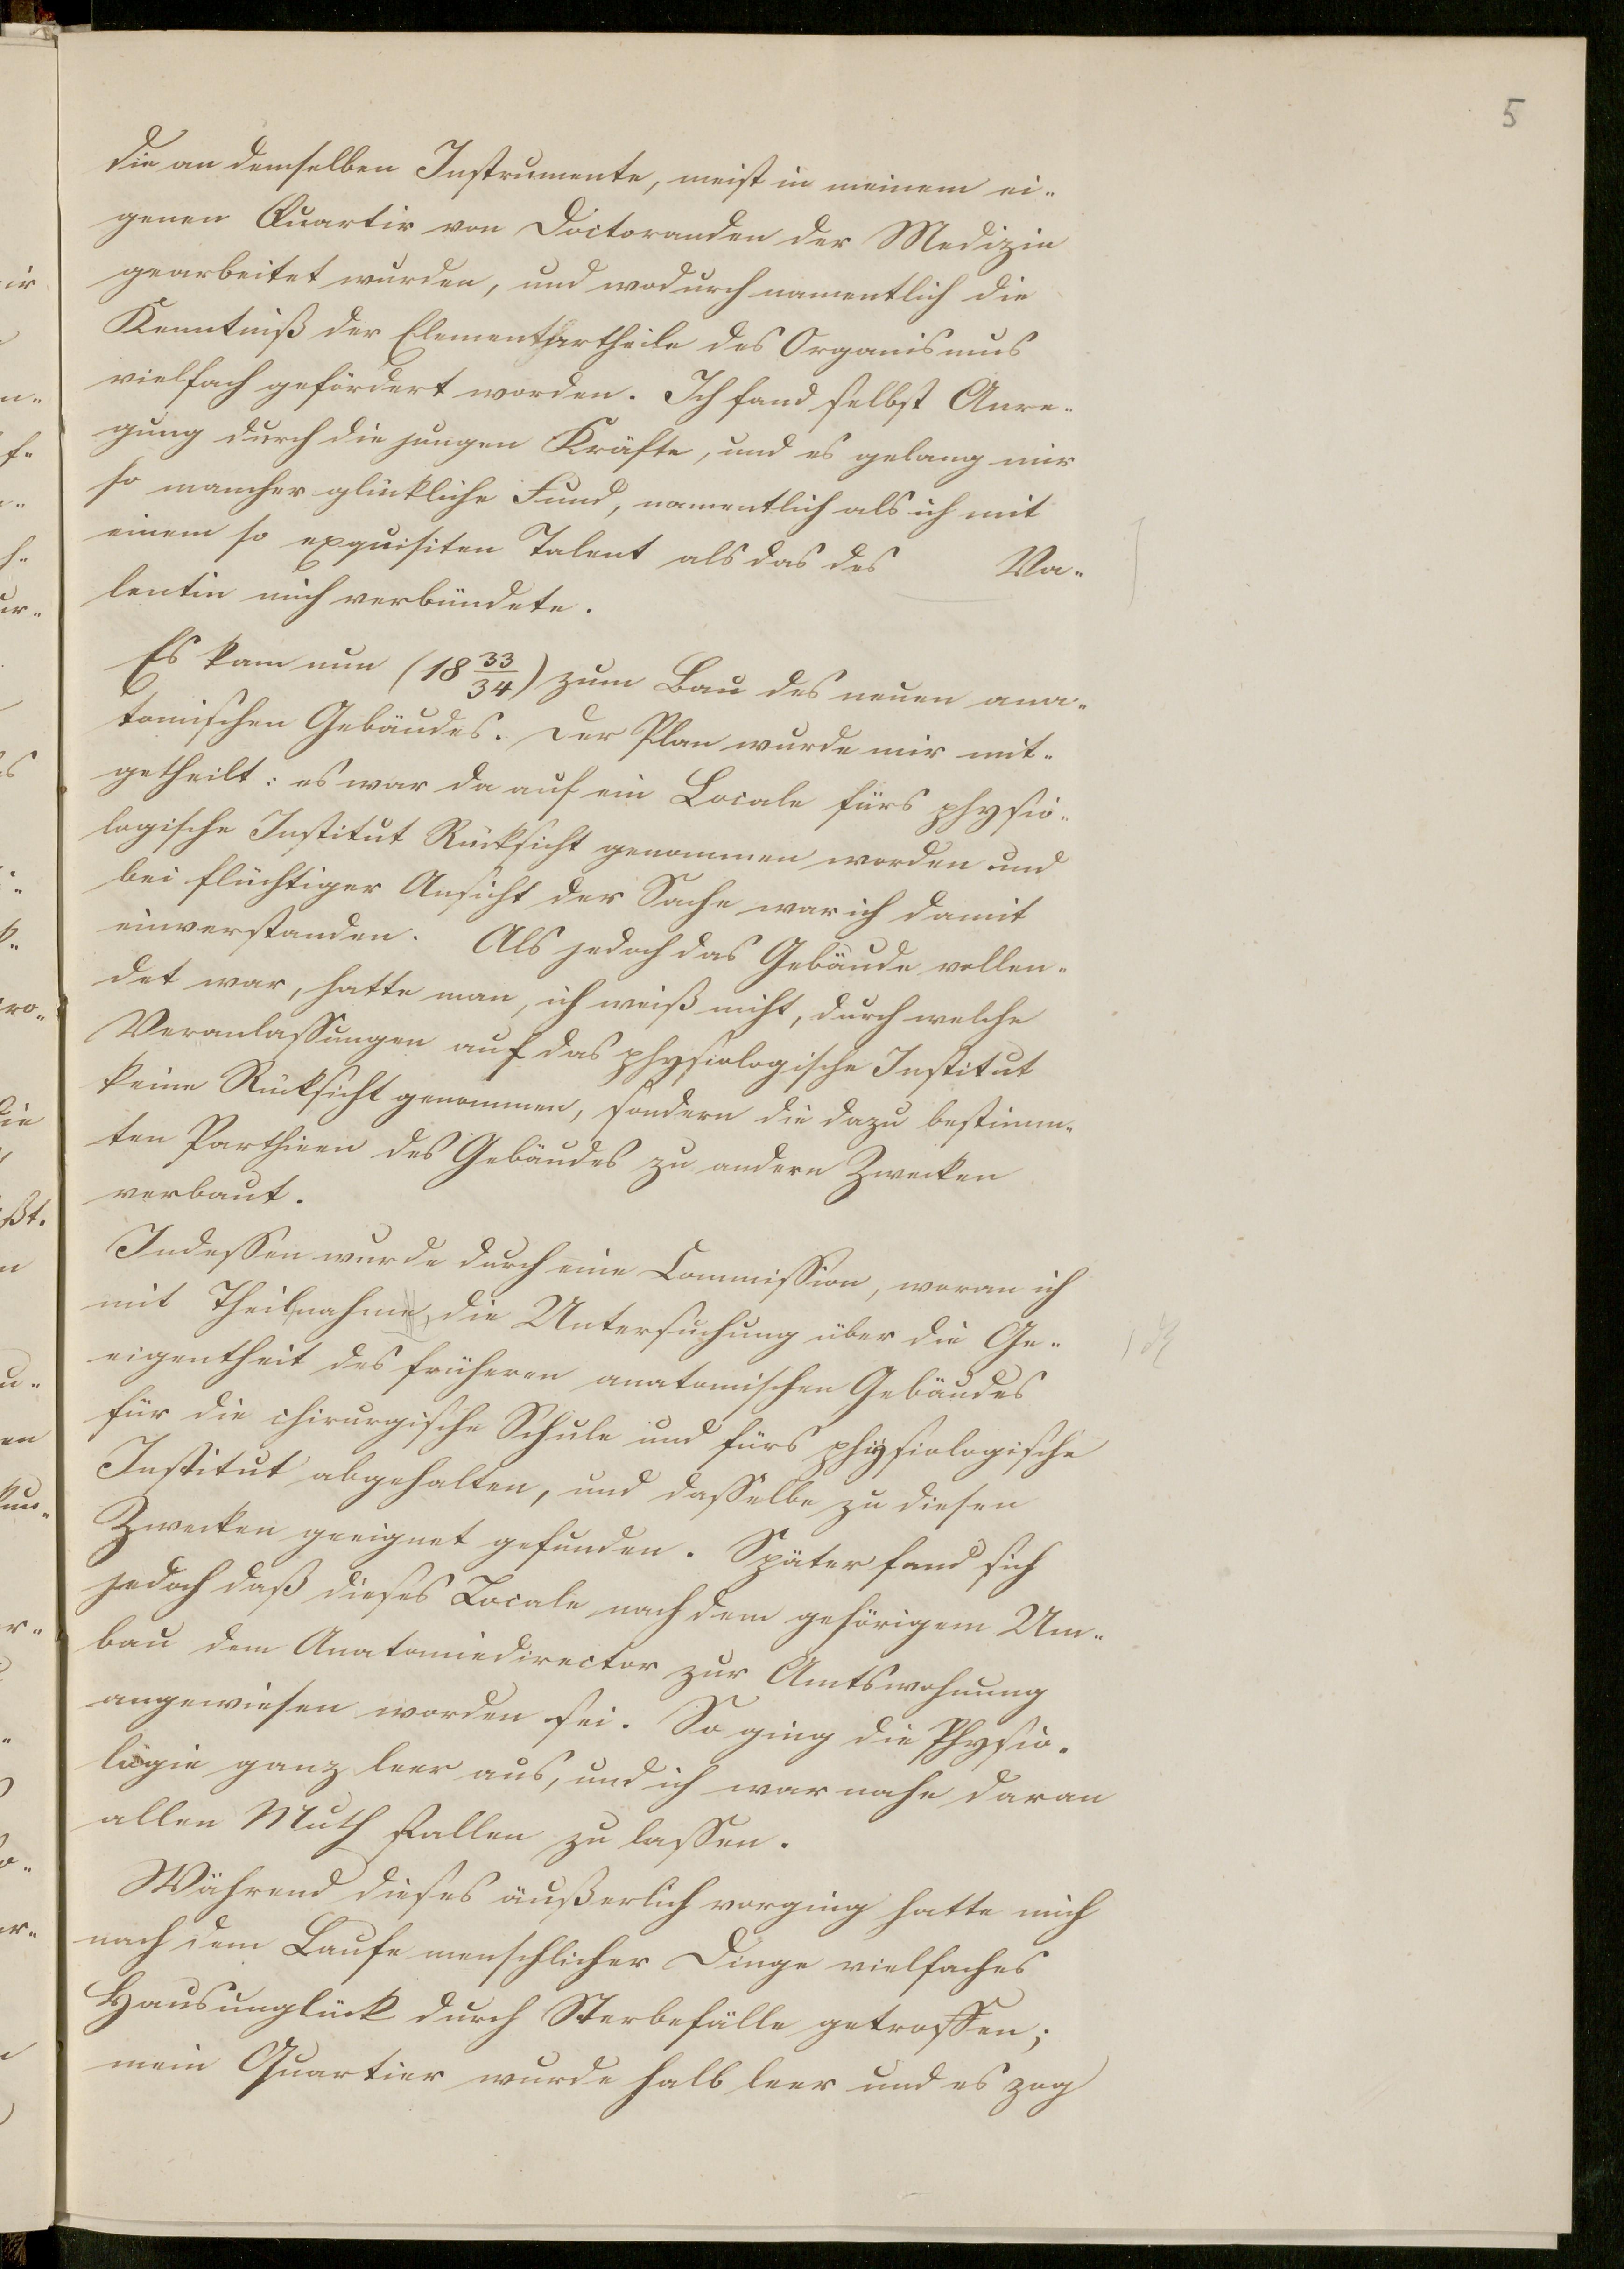 5
die an demselben Instrumente, meist in meinem ei-
genen Quartir von Doctoranden der Medizin
gearbeitet wurden, und wodurch namentlich die
Kenntniß der Elementartheile des Organismus
vielfach gefördert worden. Ich fand selbst Anre-
gung durch die jungen Kräfte, und es gelang mir
so mancher glückliche Fund, namentlich als ich mit
einem so exquisiten Talent als das des Va-
lentin mich verbündete.
Es kam nun (18 33/34) zum Bau des neuen ana-
tomischen Gebäudes. Der Plan wurde mir mit-
getheilt: es war da auf ein Locale fürs physio-
logische Institut Rücksicht genommen worden und
bei flüchtiger Ansicht der Sache war ich damit
einverstanden. Als jedoch das Gebäude vollen-
det war, hatte man, ich weiß nicht, durch welche
Veranlassungen auf das physiologische Institut
keine Rücksicht genommen, sondern die dazu bestimm-
ten Parthieen des Gebäudes zu andern Zwecken
verbaut.
Indessen wurde durch eine Commission, woran ich
mit Theilnahme die Untersuchung über die Ge-
eigentheit des früheren anatomischen Gebäudes
für die chirurgische Schule und fürs physiologische
Institut abgehalten, und dasselbe zu diesen
Zwecken geeignet gefunden. Später fand sich
jedoch daß dieses Locale nach dem gehörigem Um-
bau dem Anatomiedirector zur Amtswohnung
angewiesen worden sei. So ging die Physio-
logie ganz leer aus, und ich war nahe daran
allen Muth fallen zu lassen.
Während dieses äußerlich vorging hatte mich
nach dem Laufe menschlicher Dinge vielfaches
Hausunglück durch Sterbefälle getroffen;
mein Quartier wurde halb leer und es zog